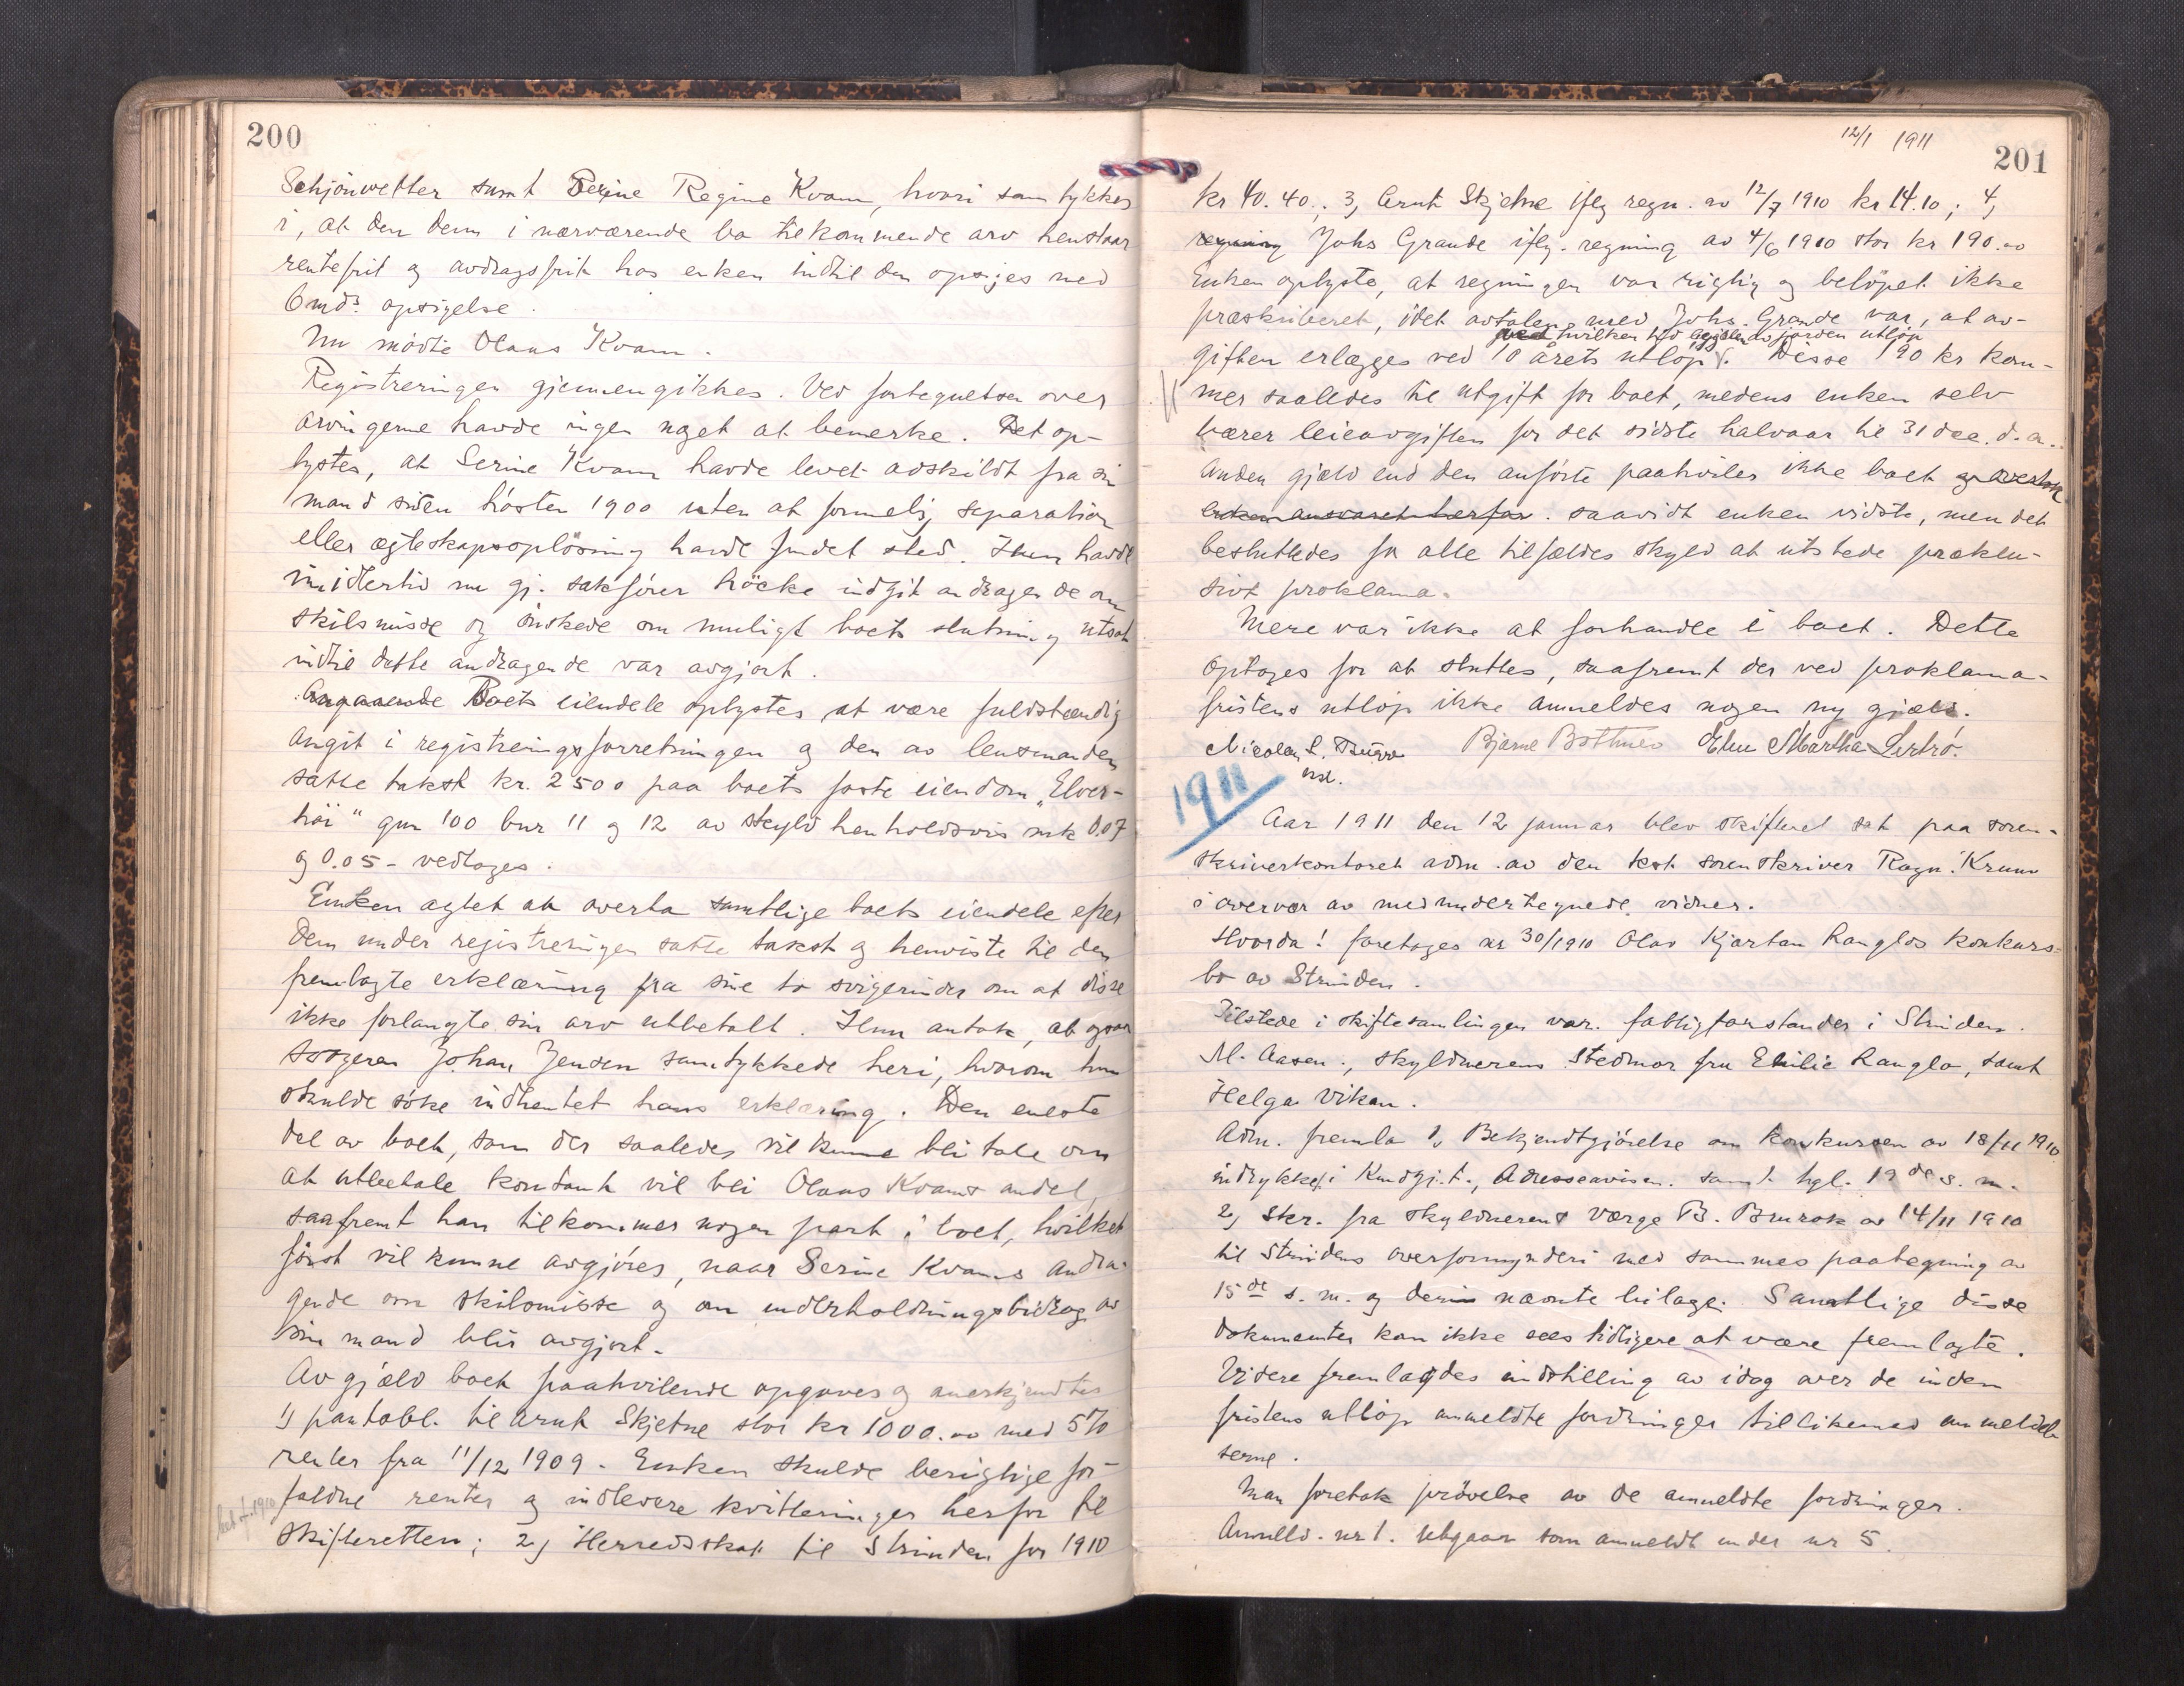 200
Schjönwetter samt Serine Regine Kvam, hvori samtykkes
i, at den dem i nærværende bo tilkommende arv henstaar
rentefrit og avdragsfrit hos enken indtil den opsiges med
6 mds opsigelse.
Nu mödte Olaus Kvam.
Registreringen gjennemgikkes. Ved fortegnelsen over
arvingerne havde ingen noget at bemerke. Det op-
lystes, at Serine Kvam havde levet adskildt fra sin
mand siden hösten 1900 uten at formelig separation
eller egteskapsoplösning havde fundet sted. Hun havde
imidlertid nu gj. sakförer Höcke indgit andragende om
skilsmisse og önskede om muligt boets slutning utsat
indtil dette andragende var avgjort.
Angaaende Boets eiendele oplystes at være fuldstændig
angit i registreringsforretningen og den av lensmanden
satte takst kr. 2500 paa boets faste eiendom „Elver-
höi" gnr 100 bnr 11 og 12 av skyld henholdsvis mk 0.07
og 0.05 - vedtoges.
Enken agtet at overta samtlige boets eiendele efter
den under registreringen satte takst og henviste til den
fremlagte erklæring fra sine to svigerinder om at disse
ikke forlangte sin arv utbetalt. Hun antok, at ogsaa
svogeren Johan Jenden samtykkede heri, hvorom hun
skulde söke indhentet hans erklæring. Den eneste
del av boet, som der saaledes vil kunne bli tale om
at utbetale kontant vil bli Olaus Kvams andel,
saafremt han tilkommer nogen part i boet, hvilket
först vil kunne avgjöres, naar Serine Kvams andra-
gende om skilsmisse og om underholdningsbidrag av
sin mand blir avgjort.
Av gjæld boet paahvilende opgaves og anerkjendtes
1) pantobl. til Arnt Skjetne stor kr 1000.00 med 5%
renter fra 11/12 1909. Enken skulde berigtige for-
faldne renter og indlevere kvitteringer herfor til
skifteretten; 2) Herredsskat til Strinden for 1910
12/1 1911
201
kr 40.40; 3, Arnt Skjetne iflg regn. av 12/7 1910 kr 14.10; 4,
regning Johs Grande iflg. regning av 4/6 1910 stor kr 190.00
Enken oplyste, at regningen var rigtig og belöpet ikke
præskriberet, idet avtalen med Johs. Grande var, at av-
ved hvilken tid av jorden utlöp
giften erlægges ved 10 årets utlöp. Disse 190 kr kom-
mer saaledes til utgift for boet, medens enken selv
bærer leieavgiften for det sidste halvaar til 31 dec. d.a.
Anden gjæld end den anförte paahviler ikke boet og overtok
enken ansvaret herfor. saavidt enken vidste, men det
besluttedes for alle tilfældes skyld at utstede præklu-
sivt proklama.
Mere var ikke at forhandle i boet. Dette
optages for at sluttes, saafremt der ved proklama-
fristens utlöp ikke anmeldes nogen ny gjæld.
Nicolay S. Bjarne Bothner Elen Martha
1911
Aar 1911 den 12 januar blev skifteret sat paa soren-
skriverkontoret adm. av den kst sorenskriver Ragn. Krum
i overvær av medundertegnede vidner.
Hvorda! foretages nr 30/1910 Olav Kjartan Ranglos konkurs-
bo av Strinden.
Tilstede i skiftesamlingen var. fattigforstander i Strinden.
M. Aasen., skyldnerens stedmor fru Emilie Ranglo, samt
Helga Vikan.
Adm. fremla 1, Bekjendtgjörelse om konkursen av 18/11 1910
indrykket i Kundgj.t., Adresseavisen. samt tgl. 19de s.m.
2, Skr. fra skyldnerens værge B. Brurok av 14/11 1910
til Strindens overformynderi med sammes paategning av
15de s.m. og deri nævnte bilage. Samtlige disse
dokumenter kan ikke sees tidligere at være fremlagte.
Videre fremlagdes indstilling av idag over de inden
fristens utlöp anmeldte fordringer tillikemed anmeldel-
serne.
Man foretok prövelse av de anmeldte fordringer.
Anmeld. nr 1. Utgaar som anmeldt under nr 5.